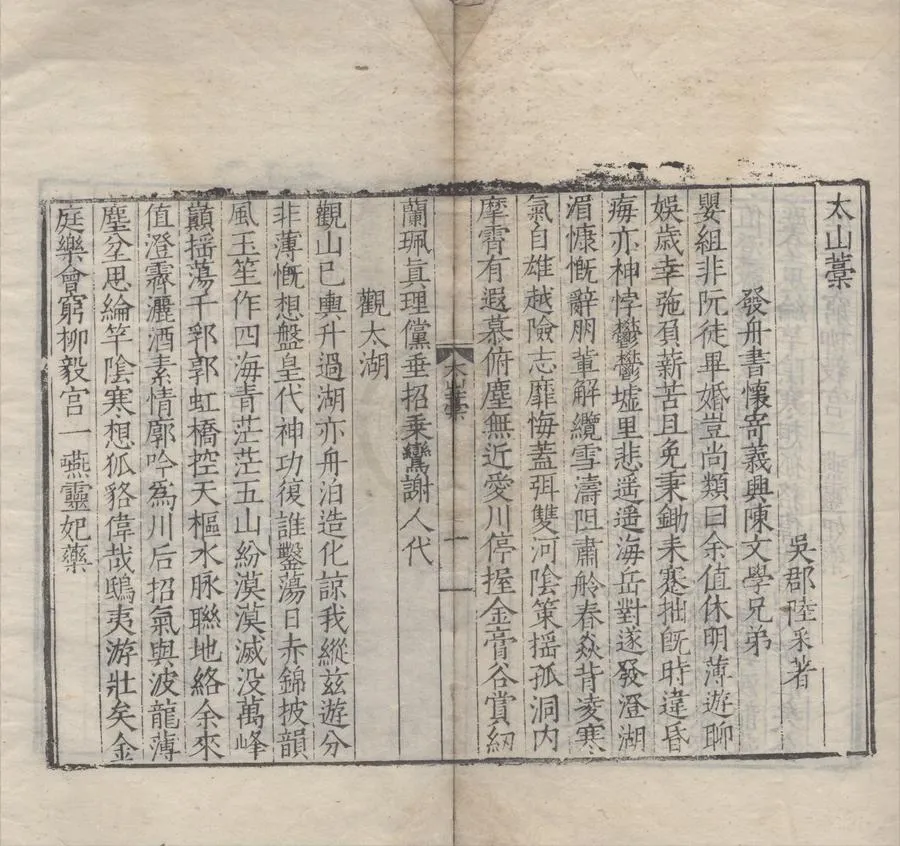 太山藁
吳郡陸采著
發舟書懷寄義興陳文學兄弟
嬰組非阮徒畢婚豈尚類曰余值休明薄遊聊
娛歲幸弛負薪苦且免秉鋤耒蹇拙旣時違昏
痗亦神悖鬱鬱墟里悲遥遥海岳對遂發澄湖
湄慷慨辭朋輩解纜雪濤阻肅舲春焱背凌寒
氣自雄越險志靡悔蓋弭雙河陰策揺孤洞内
摩霄有遐慕俯塵無近愛川停握金膏谷賞紉
太山藁
一
蘭珮眞理儻垂招乗鸞謝人代
觀太湖
觀山已輿升過湖亦舟泊造化諒我縱兹遊分
非薄慨想盤皇代神功復誰鑿蕩日赤錦披韻
風玉笙作四海青茫茫五山紛漠漠滅没萬峰
巔揺蕩千郛郭虹橋控天樞水脉聯地絡余來
值澄霽灑酒素情廓吟爲川后招氣與波龍薄
塵坌思綸竿陰寒想狐貉偉哉鴟夷游壯矣金
庭樂會窮柳毅宫一燕靈妃藥